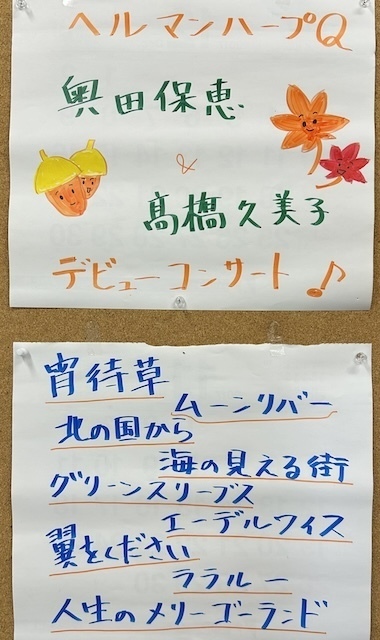 ヘルマンハープQ
奥田保恵
&
髙橋久美子
デビューコンサート♪
宵待草
ムーンリバー
北の国から
海の見える街
グリーンスリーブス
エーデルワイス
翼をください
ララルー
人生のメリーゴーランド